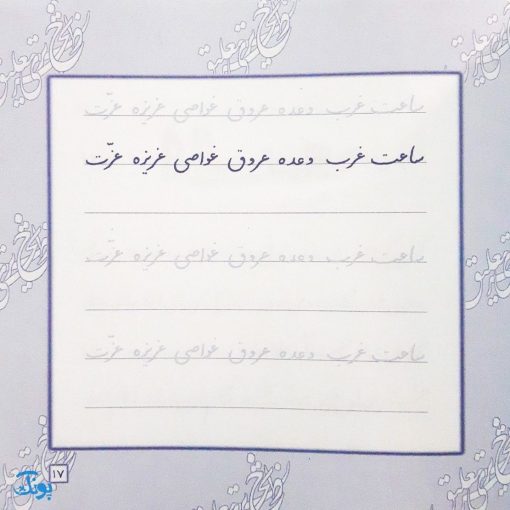 ساعت غرب وعده عروق غواصی غریزه عزّت
ساعت غرب وعده عروق غواصی غریزه عزّت
ساعت غرب وعده عروق غواصی غریزه عزّت
ساعت غرب وعده عروق غواصی غریزه عزّت
۱۷
پونک